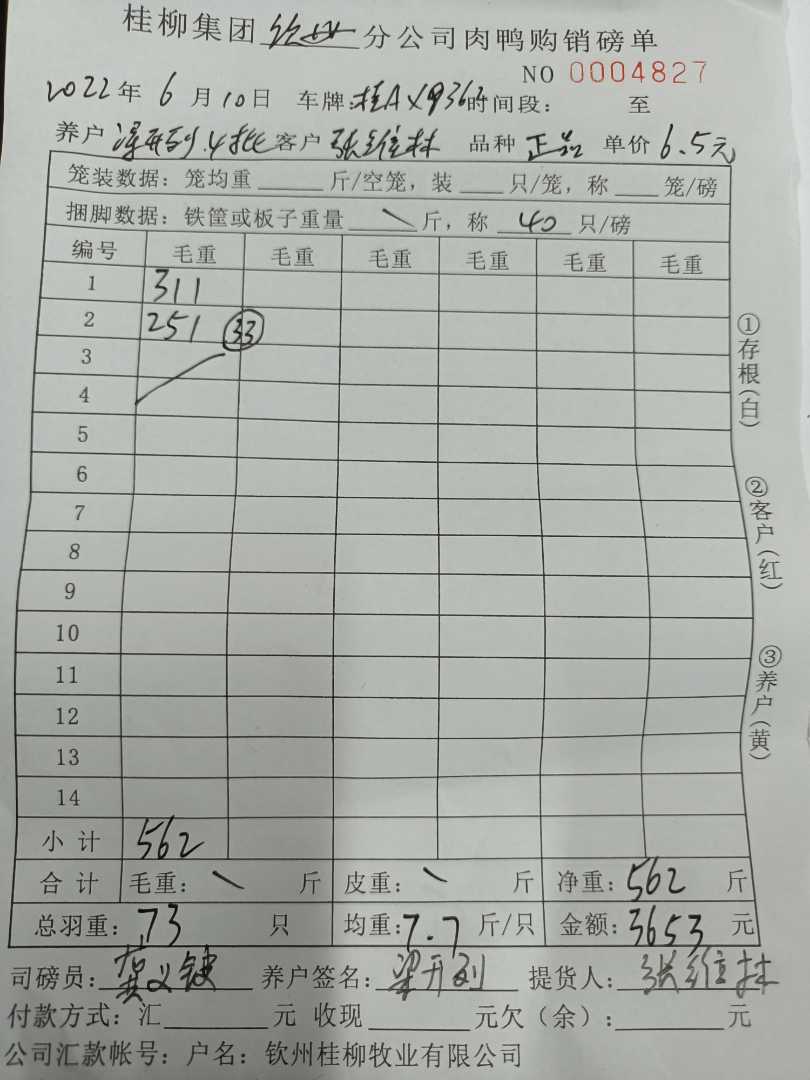 桂柳集团钦州分公司肉鸭购销磅单
NO 0004827
2022年6月10日 车牌:桂A 时间段: 至
养户 开列.4批 客户 张维林 品种 正品 单价 6.5元
笼装数据:笼均重______斤/空笼,装____只/笼,称____笼/磅
捆脚数据:铁筐或板子重量 \ 斤,称 40 只/磅
编号 毛重 毛重 毛重 毛重 毛重 毛重
1 311
2 251 33
3
4
5
6
7
8
9
10
11
12
13
14
小计 562
合计 毛重: \ 斤 皮重: \ 斤 净重: 562 斤
总羽重: 73 只 均重: 7.7 斤/只 金额: 3653 元
司磅员: 黄义键 养户签名: 梁开列 提货人: 张维林
付款方式:汇______元 收现______元欠(余):______元
公司汇款帐号:户名:钦州桂柳牧业有限公司
①存根(白)
②客户(红)
③养户(黄)